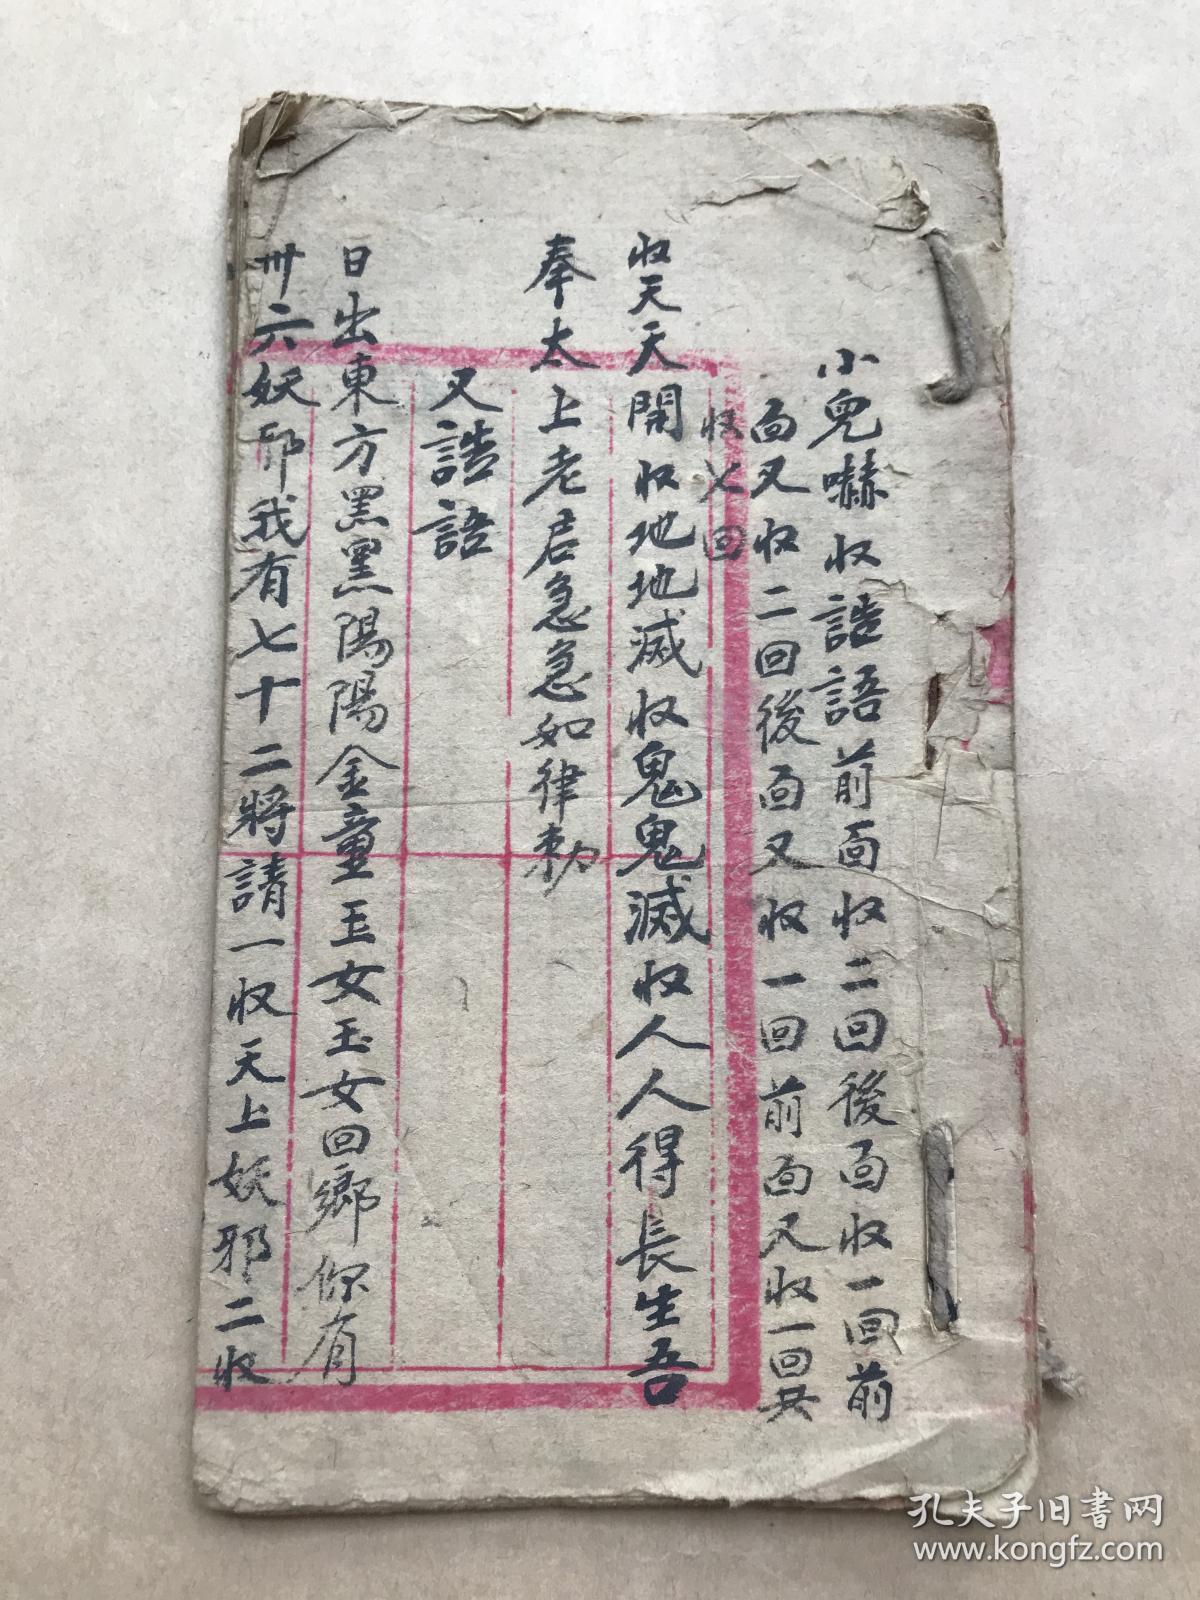 小兒嚇收誥語前面收二回後面收一回前
面又收二回後面又收一回前面又收一回共
收七回
收天天開收地地滅收鬼鬼滅收人人得長生吾
奉太上老君急急如律勅
又誥語
日出東方黑黑陽陽金童玉女玉女回鄉你有
卅六妖邪我有七十二將請一收天上妖邪二收
孔夫子旧書网
www.kongfz.com